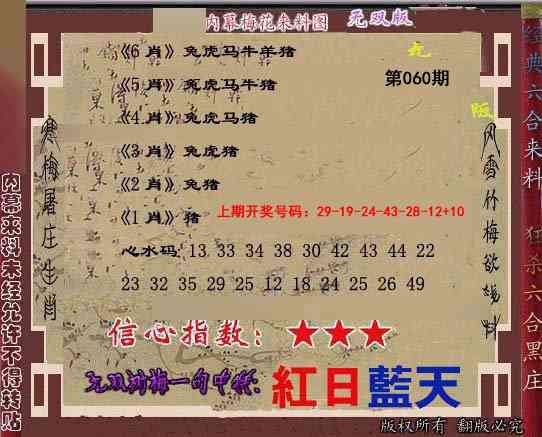 内幕梅花来料图 无双版
《6 肖》兔虎马牛羊猪
《5 肖》兔虎马牛猪
《4 肖》兔虎马猪
《3 肖》兔虎猪
《2 肖》兔猪
《1 肖》猪
第060期
上期开奖号码:29-19-24-43-28-12+10
心水码: 13 33 34 38 30 42 43 44 22
23 32 35 29 25 12 18 24 25 26 49
信心指数:★★★
一句中特:
紅日藍天
寒梅屠庄生肖
风雪竹梅欲
经典六合来料
狂杀六合黑庄
内幕来料未经允许不得转贴
版权所有 翻版必究